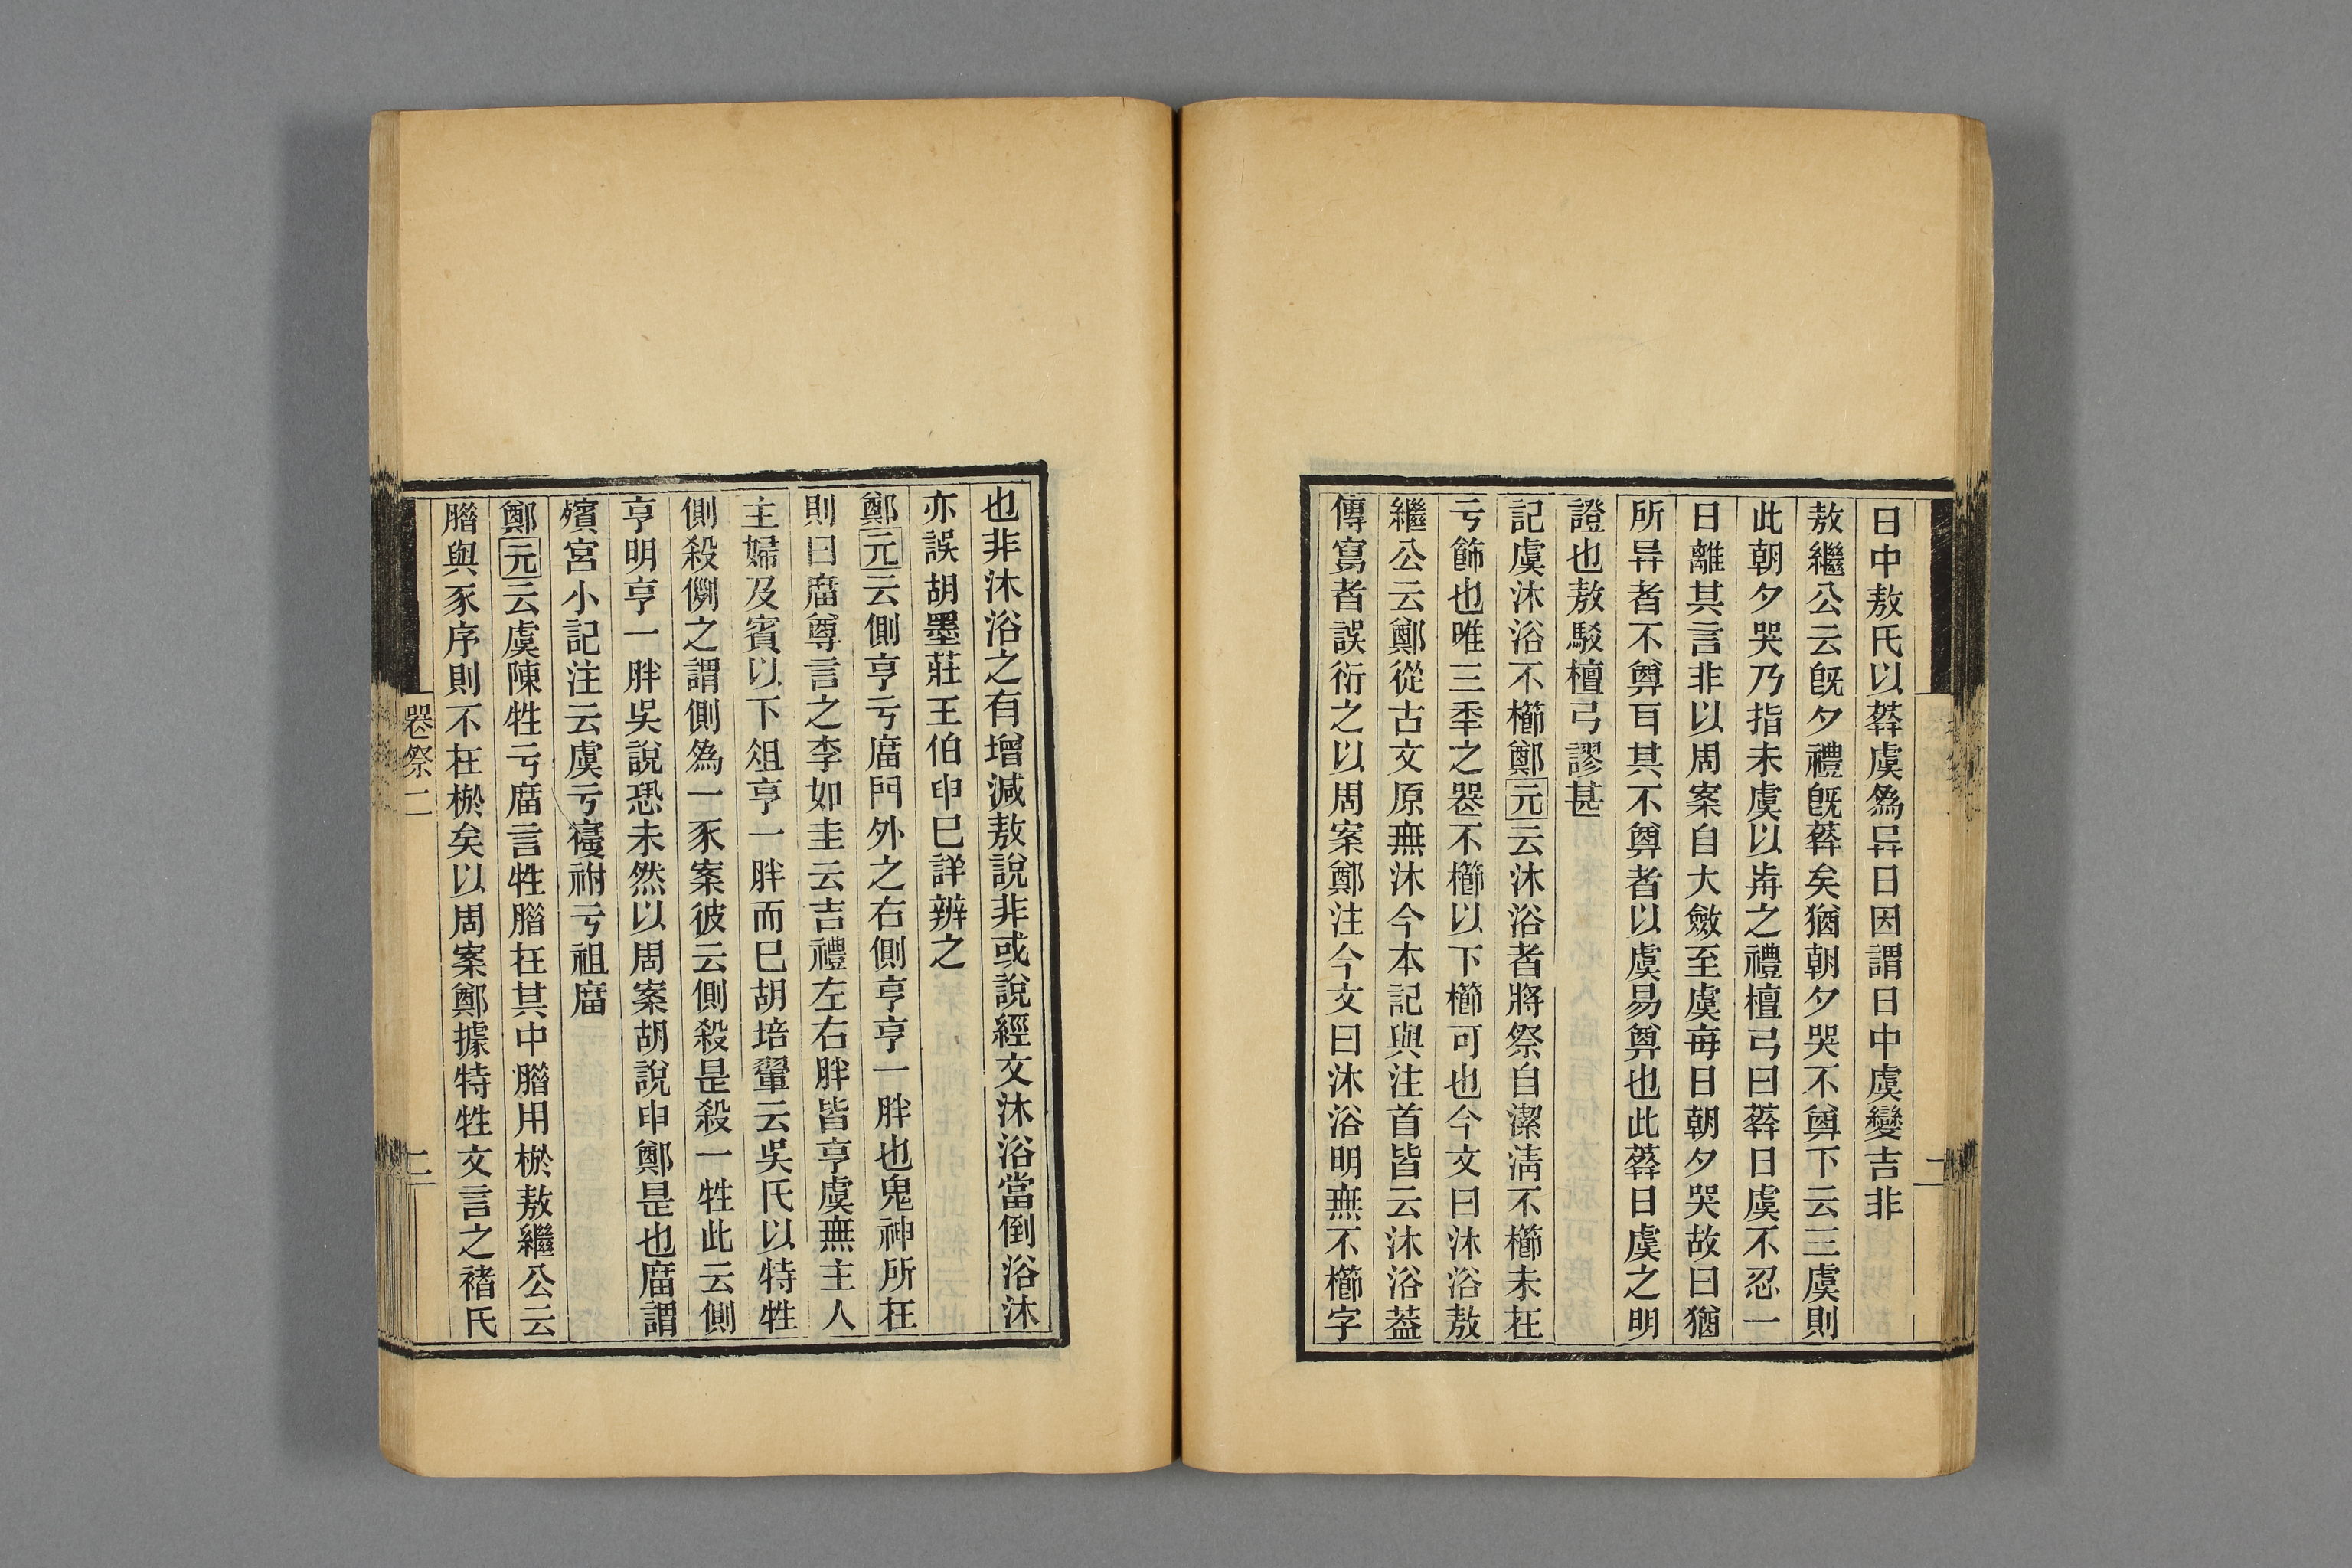 日中敖氏以葬虞為异日因謂日中虞變吉非
敖繼公云旣夕禮旣葬矣猶朝夕哭不奠下云三虞則
此朝夕哭乃指未虞以歬之禮檀弓曰葬日虞不忍一
日離其言非以周案自大斂至虞每日朝夕哭故曰猶
所异者不奠耳其不奠者以虞易奠也此葬日虞之明
證也敖駁檀弓謬甚
記虞沐浴不櫛鄭元云沐浴者將祭自潔淸不櫛未在
亏飾也唯三秊之喪不櫛以下櫛可也今文曰沐浴敖
繼公云鄭從古文原無沐今本記與注首皆云沐浴葢
傳寫者誤衍之以周案鄭注今文曰沐浴明無不櫛字
也非沐浴之有增減敖說非或說經文沐浴當倒浴沐
亦誤胡墨莊王伯申巳詳辨之
鄭元云側亨亏庿門外之右側亨亨一胖也鬼神所在
則曰庿尊言之李如圭云吉禮左右胖皆亨虞無主人
主婦及賓以下俎亨一胖而巳胡培翬云吳氏以特牲
側殺側之謂側為一豕案彼云側殺是殺一牲此云側
亨明亨一胖吳說恐未然以周案胡說申鄭是也庿謂
殯宮小記注云虞亏寑祔亏祖庿
鄭元云虞陳牲亏庿言牲腊在其中腊用棜敖繼公云
腊與豕序則不在棜矣以周案鄭據特牲文言之褚氏
喪祭二
二
二